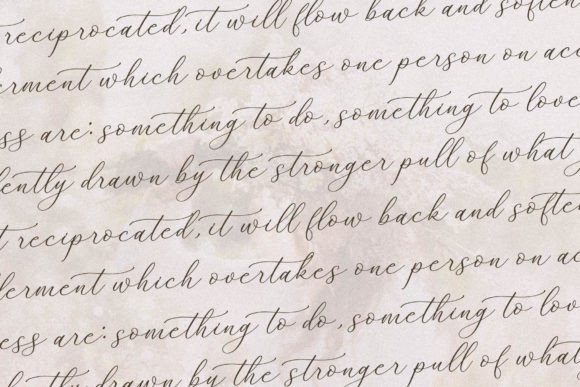 reciprocated, it will flow back and soften
lerment which overtakes one person on acc
ess are: something to do, something to love
lently drawn by the stronger pull of what y
t reciprocated, it will flow back and soften
lerment which overtakes one person on acc
ess are: something to do, something to lov
lently drawn by the stronger pull of what